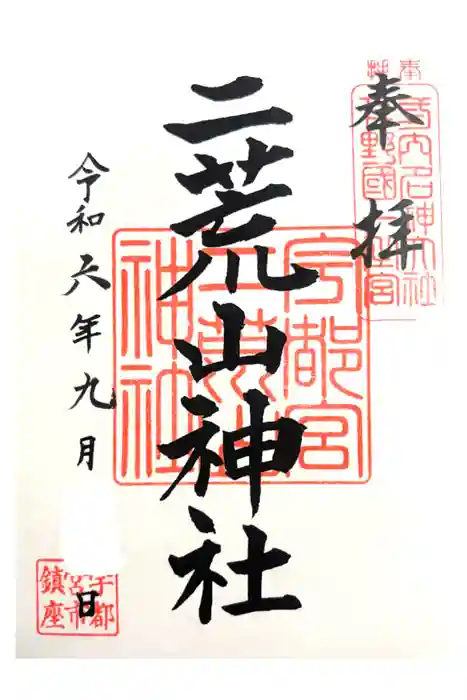 奉拝
二荒山神社
令和六年九月 日
奉拝
式内名神大社
下野國一之宮
宇都宮
二荒山
神社
宇都
宮市
鎮座